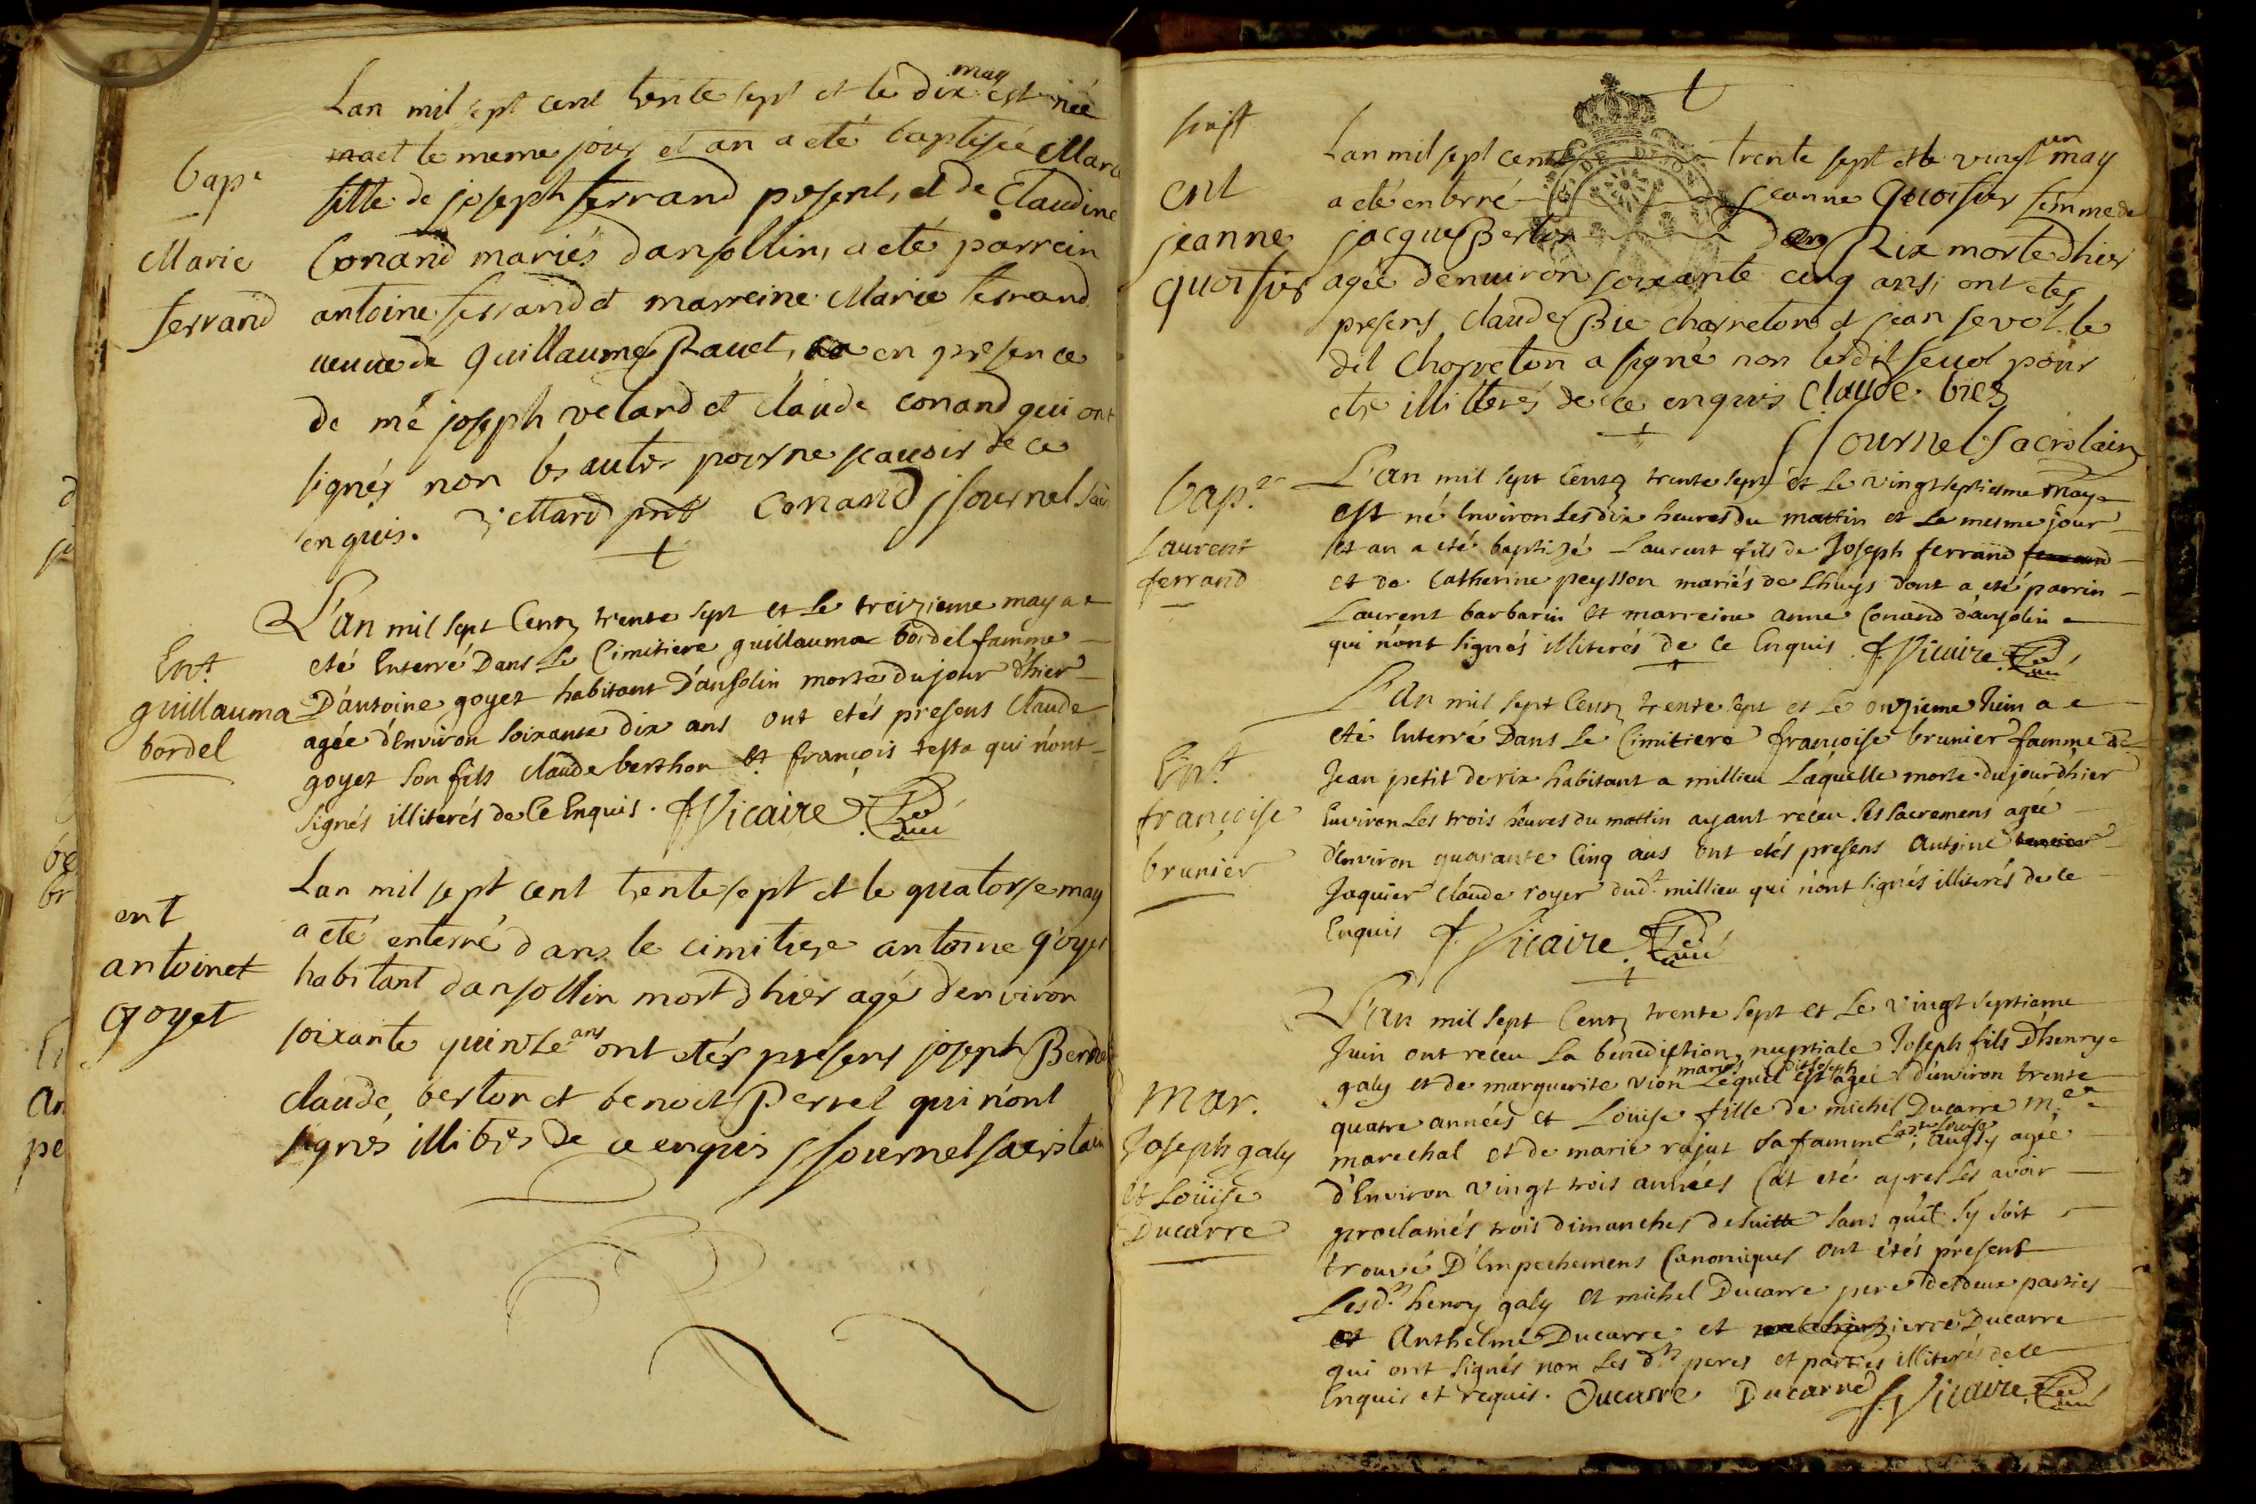 Lan mil sept cent trente sept et le dix may est née
et le meme jour et an a eté baptisée Marie
fille de joseph ferrand present, et de Claudine
Conand mariés dansollin, a eté parrein
antoine ferrand et marreine Marie ferrand
veuve de guillaume Ravet, en presence
de me joseph velard et claude conand qui ont
signés non les autres pour ne scavoir de ce
enquis. conand ssournel
bap.
Marie
ferrand
L'an mil sept Centz trente sept et Le treizieme may a
eté Enterré Dans Le Cimitiere guillauma bordel famme
D'antoine goyet habitant D'ansolin morte du jour d'hier
agée d'Environ soixante dix ans ont etés presens Claude
goyet son fils claude berthon et françois testa qui n'ont
signés illiterés de Ce Enquis. Vicaire
Ent.
guillauma
bordel
Lan mil sept cent trente sept et le quatorse may
a eté enterré dans le cimitiere antoine goyet
habitant dansollin mort dhier agé denviron
soixante quinze ans ont etés presens joseph
claude berton et benoit Perret qui n'ont
signés illiterés de ce enquis ssournel sacristain
ent
antoine
goyet
Lan mil sept cent trente sept et le vingt un may
a eté enterré jeanne quoisier femme de
jacque Berton Rix morte dhier
agée denuiron soixante cinq ans, ont etes
presens claude Bie charreton et jean sevol. le
dit Charreton a signé non ledit sevol pour
etre illitterés de ce enquis Claude. biez
ssournel sacristain
ent
jeanne
quoisier
L'an mil sept Centz trente sept et Le vingt septieme may
est né Environ Les dix heures du mattin et Le mesme jour
et an a eté baptizé Laurent fils de Joseph ferrand ferrand
et de Catherine peysson mariés de Lhuys dont a eté parrin
Laurent barbarin et marreine anne Conand d'ansolin
qui n'ont signés illiterés de Ce Enquis Vicaire
bap.
Laurent
ferrand
L'an mil sept Centz trente sept et Le onzieme Juin a
eté Enterré Dans Le Cimitiere françoise brunier famme de
Jean petit de rix habitant a millieu Laquelle morte du jour d'hier
Environ Les trois heures du mattin ayant reçeu Ses sacremens agée
d'Environ quarante Cinq ans ont etés presens Antoine
Jaquier Claude royer dud.t millieu qui n'ont signés illiterés de ce
Enquis Vicaire
Ent.
françoise
brunier
L'an mil sept Centz trente sept et Le vingt septieme
Juin ont reçeu La benediction nuptiale Joseph fils D'henry
galy et de marguerite vion mariés Lequel est agée d'environ trente
quatre années et Loüise fille de michel Ducarre m.e
marechal et de marie rajut sa famme aussy agée
d'Environ vingt trois années Çat eté apres Les avoir
proclamés trois dimanches de suitte sans qu'il sy soit
trouvé D'Empechemens Canoniques ont étés present
Lesd.ts henry galy et michel Ducarre pere des deux parties
et Anthelme Ducarre et pierre Ducarre
qui ont signés non Les d.ts peres et parties illiterés de Ce
Enquis et requis. Ducarre Ducarre Vicaire
Mar.
Joseph galy
et Loüise
Ducarre